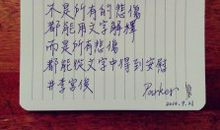 不是所有的悲傷
都能用文字解釋
而是所有悲傷
都能從文字中得到安慰
#李宮俊
Parker
2014.9.21